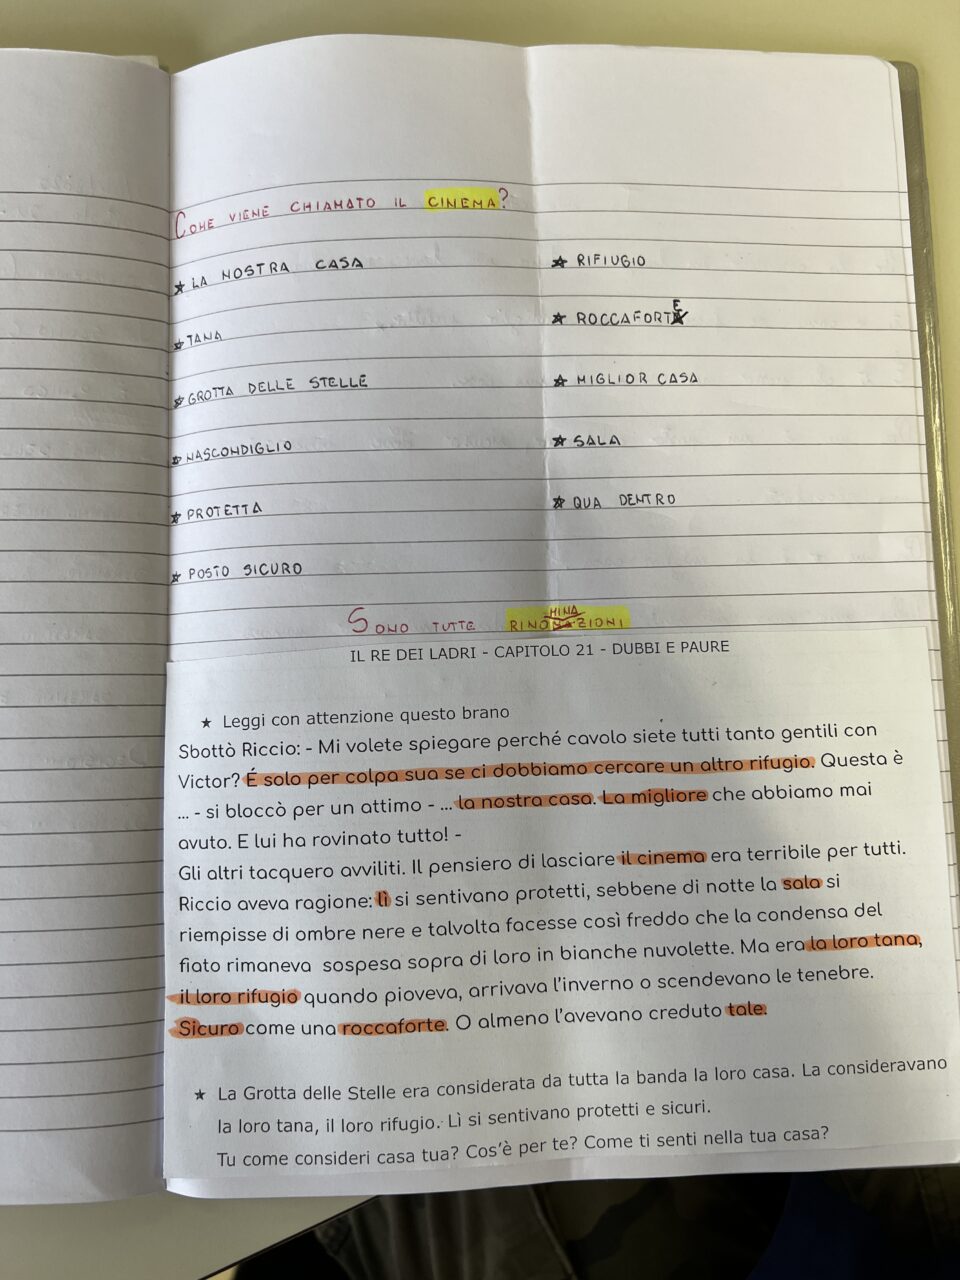 COME VIENE CHIAMATO IL CINEMA?
★ LA NOSTRA CASA
★ TANA
★ GROTTA DELLE STELLE
★ NASCONDIGLIO
★ PROTETTA
★ POSTO SICURO
★ RIFIUGIO
★ ROCCAFORTE
★ MIGLIOR CASA
★ SALA
★ QUA DENTRO
SONO TUTTE RINOMINAZIONI
IL RE DEI LADRI - CAPITOLO 21 - DUBBI E PAURE
★ Leggi con attenzione questo brano
Sbottò Riccio: - Mi volete spiegare perché cavolo siete tutti tanto gentili con
Victor? É solo per colpa sua se ci dobbiamo cercare un altro rifugio. Questa è
... - si bloccò per un attimo - ... la nostra casa. La migliore che abbiamo mai
avuto. E lui ha rovinato tutto! -
Gli altri tacquero avviliti. Il pensiero di lasciare il cinema era terribile per tutti.
Riccio aveva ragione: lì si sentivano protetti, sebbene di notte la sala si
riempisse di ombre nere e talvolta facesse così freddo che la condensa del
fiato rimaneva sospesa sopra di loro in bianche nuvolette. Ma era la loro tana,
il loro rifugio quando pioveva, arrivava l'inverno o scendevano le tenebre.
Sicuro come una roccaforte. O almeno l'avevano creduto tale.
★ La Grotta delle Stelle era considerata da tutta la banda la loro casa. La consideravano
la loro tana, il loro rifugio. Lì si sentivano protetti e sicuri.
Tu come consideri casa tua? Cos'è per te? Come ti senti nella tua casa?